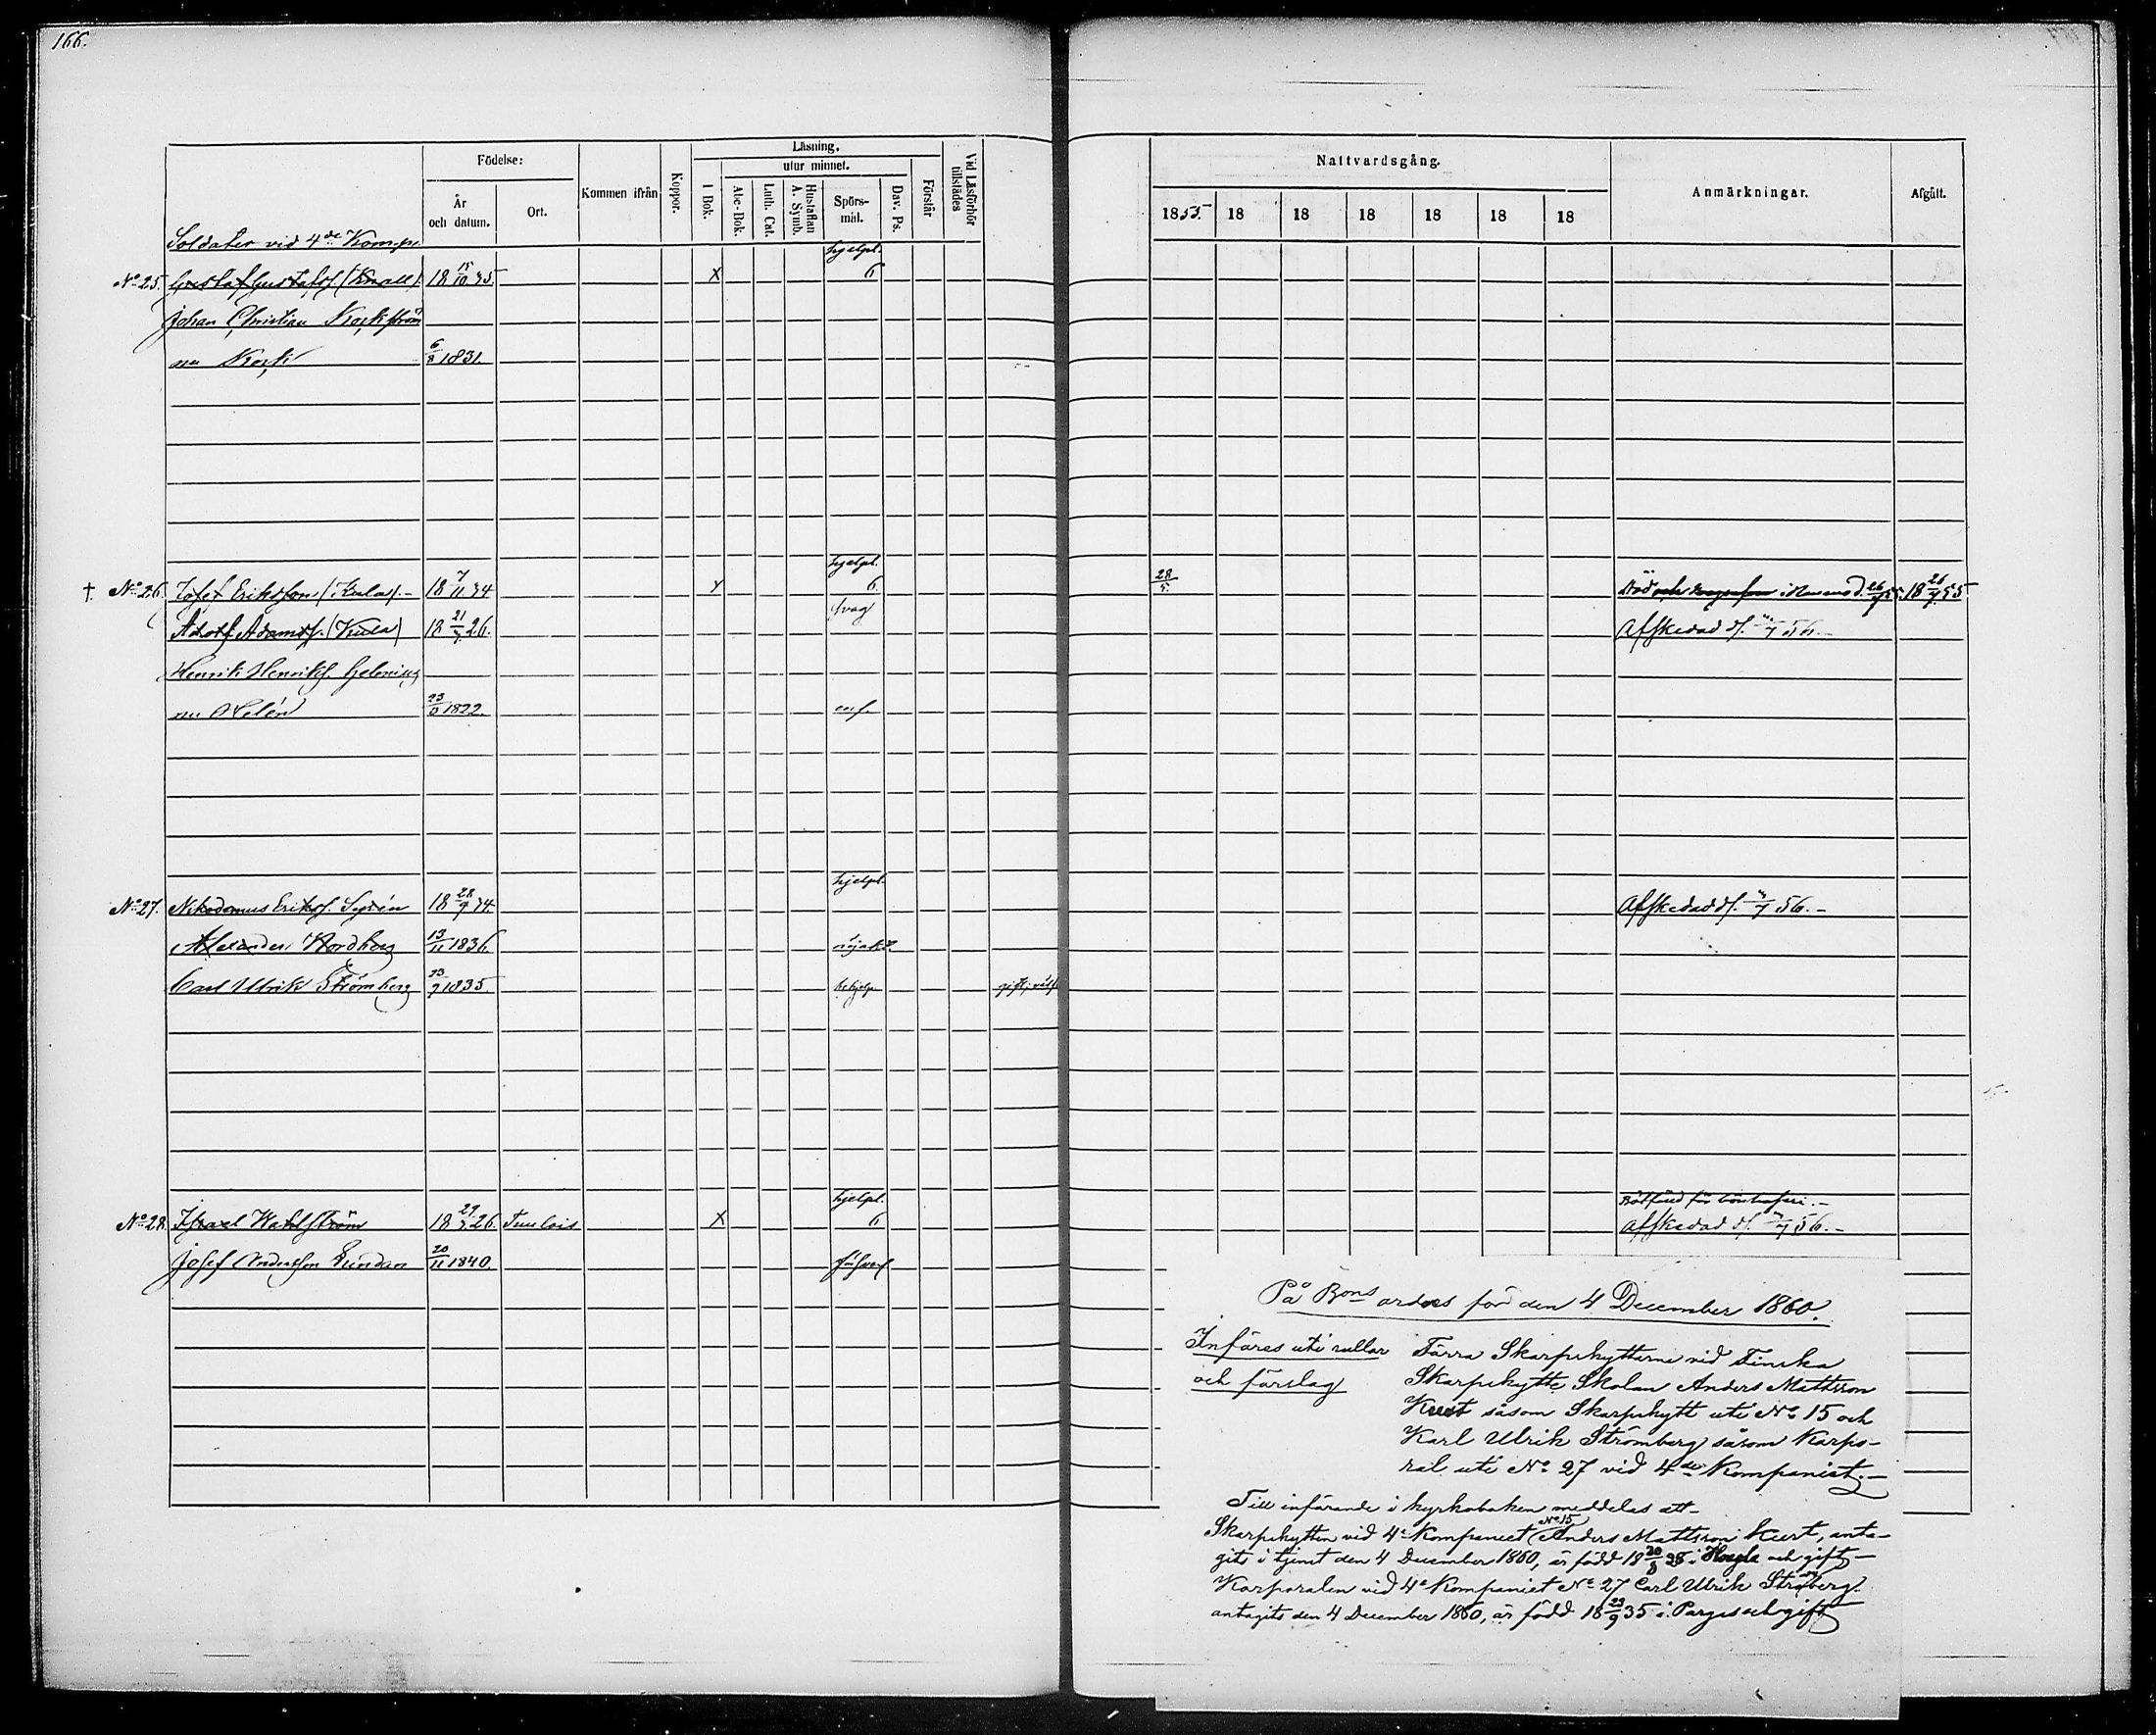 166.
Födelse:
År och datum.
Ort.
Kommen ifrån
Koppor.
Läsning.
I Bok.
utur minnet.
Abc-Bok.
Luth. Cat.
Hustaflan A. Symb.
Spörs-mål.
Dav. Ps.
Förstår
Vid Läsförhör tillstädes
Nattvardsgång.
1855 18 18 18 18 18 18
Anmärkningar.
Afgått.
Soldater vid 4de Komp.
hjelpl.
No 25. Gustaf Gustafss. (Knall) 18 15/10 35. x 6
Johan Christian
nu 6/8 1831.
hjelpl.
† No 26. Josef Eriksson (Kula).- 18 7/11 34 x 6 28/5 Död 26/7 55. 18 26/7 55.
svag
Adolf Adamss. (Kula) 18 21/7 26. Afskedad d. /7 56.-
Henrik Henrikss.
nu 23/8 1822.
hjelpl.
No 27. Nikodemus Erikss. Syrén 18 28/9 34. Afskedad d. /7 56.-
Alexander Nordberg 13/11 1836. nöjakt.
Carl Ulrik Strömberg 23/9 1835. gift;
hjelpl.
No 28. Israel Wahlström 18 29/3 26. Tuulois x 6 Afskedad d. /7 56.-
Josef Andersson Lundan 20/11 1840.
På Bons orders för den 4 December 1860.
Införes uti rullar
och förslag
Förra Skarpskyttarne vid Finska
Skarpskytte Skolan Anders Mattsson
Kvist såsom Skarpskytt uti No 15 och
Karl Ulrik Strömberg såsom Karpo-
ral uti No 27 vid 4de Kompaniet.-
Till införande i kyrkoboken meddelas att-
Skarpskytten vid 4e Kompaniet No 15 Anders Mattsson, anta-
gits i tjenst den 4 December 1860, är född 18 20/8 38 i och gift-
Korporalen vid 4e Kompaniet No 27 Carl Ulrik Strömberg.
antagits den 4 December 1860, är född 18 23/9 35 i Pargas och gift